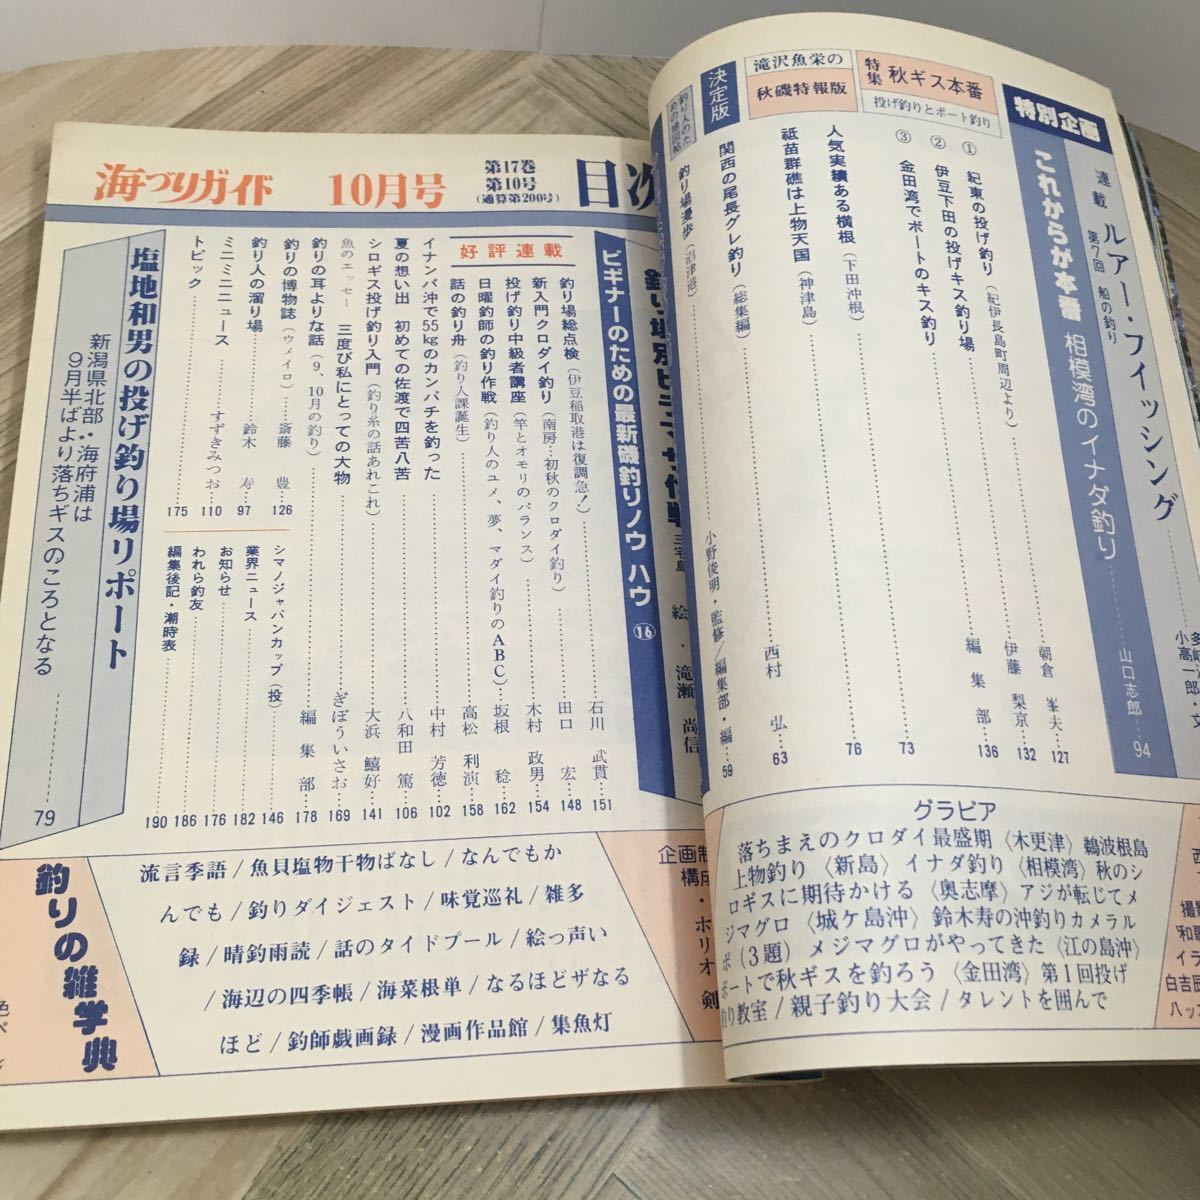 特別企画
連載 ルアー・フィッシング
第7回 船の釣り
これからが本番 相模湾のイナダ釣り……山口志郎…94
特集
秋ギス本番
投げ釣りとボート釣り
① 紀東の投げ釣り(紀伊長島町周辺より)……朝倉 峯夫…127
② 伊豆下田の投げキス釣り場……伊藤 梨京…132
③ 金田湾でボートのキス釣り……編集部…136
滝沢魚栄の
秋磯特報版
人気実績ある横根(下田沖根)……73
祗苗群礁は上物天国(神津島)……76
決定版
関西の尾長グレ釣り(総集編)……西村 弘…63
釣り人のための地図帖
釣り場漫歩(沼津港)……小野俊明・監修/編集部・編…59
グラビア
落ちまえのクロダイ最盛期〈木更津〉鵜渡根島
上物釣り〈新島〉イナダ釣り〈相模湾〉秋のシ
ロギスに期待かける〈奥志摩〉アジが転じてメ
ジマグロ〈城ケ島沖〉鈴木寿の沖釣りカメラル
ポ(3題)メジマグロがやってきた〈江の島沖〉
ボートで秋ギスを釣ろう〈金田湾〉第1回投げ
釣り教室/親子釣り大会/タレントを囲んで
海づりガイド 10月号
第17巻
第10号
(通算第200号)
目次
三宅島
絵・滝瀬 尚信
ビギナーのための最新磯釣りノウハウ⑯
好評連載
釣り場総点検(伊豆稲取港は復調急!)……石川 武貫…151
新入門クロダイ釣り(南房…初秋のクロダイ釣り)……田口 宏…148
投げ釣り中級者講座(竿とオモリのバランス)……木村 政男…154
日曜釣師の釣り作戦(釣り人のユメ、夢、マダイ釣りのABC)…坂根 稔…162
話の釣り舟(釣り人課誕生)……高松 利演…158
イナンバ沖で55kgのカンパチを釣った……中村 芳徳…102
夏の想い出 初めての佐渡で四苦八苦……八和田 篤…106
シロギス投げ釣り入門(釣り糸の話あれこれ)……大浜 鱚好…141
魚のエッセー 三度び私にとっての大物……ぎぼういさお…169
釣りの耳よりな話(9、10月の釣り)……編集部…178
釣りの博物誌(ウメイロ)……斎藤 豊…126
釣り人の溜り場……鈴木 寿…97
ミニミニニュース……すずきみつお…110
トピック……175
シマノジャパンカップ(投)……146
業界ニュース……182
お知らせ……176
われら釣友……186
編集後記・潮時表……190
塩地和男の投げ釣り場リポート
新潟県北部・海府浦は
9月半ばより落ちギスのころとなる……79
釣りの雑学典
流言季語/魚貝塩物干物ばなし/なんでもか
んでも/釣りダイジェスト/味覚巡礼/雑多
録/晴釣雨読/話のタイドプール/絵っ声い
/海辺の四季帳/海菜根単/なるほどザなる
ほど/釣師戯画録/漫画作品館/集魚灯